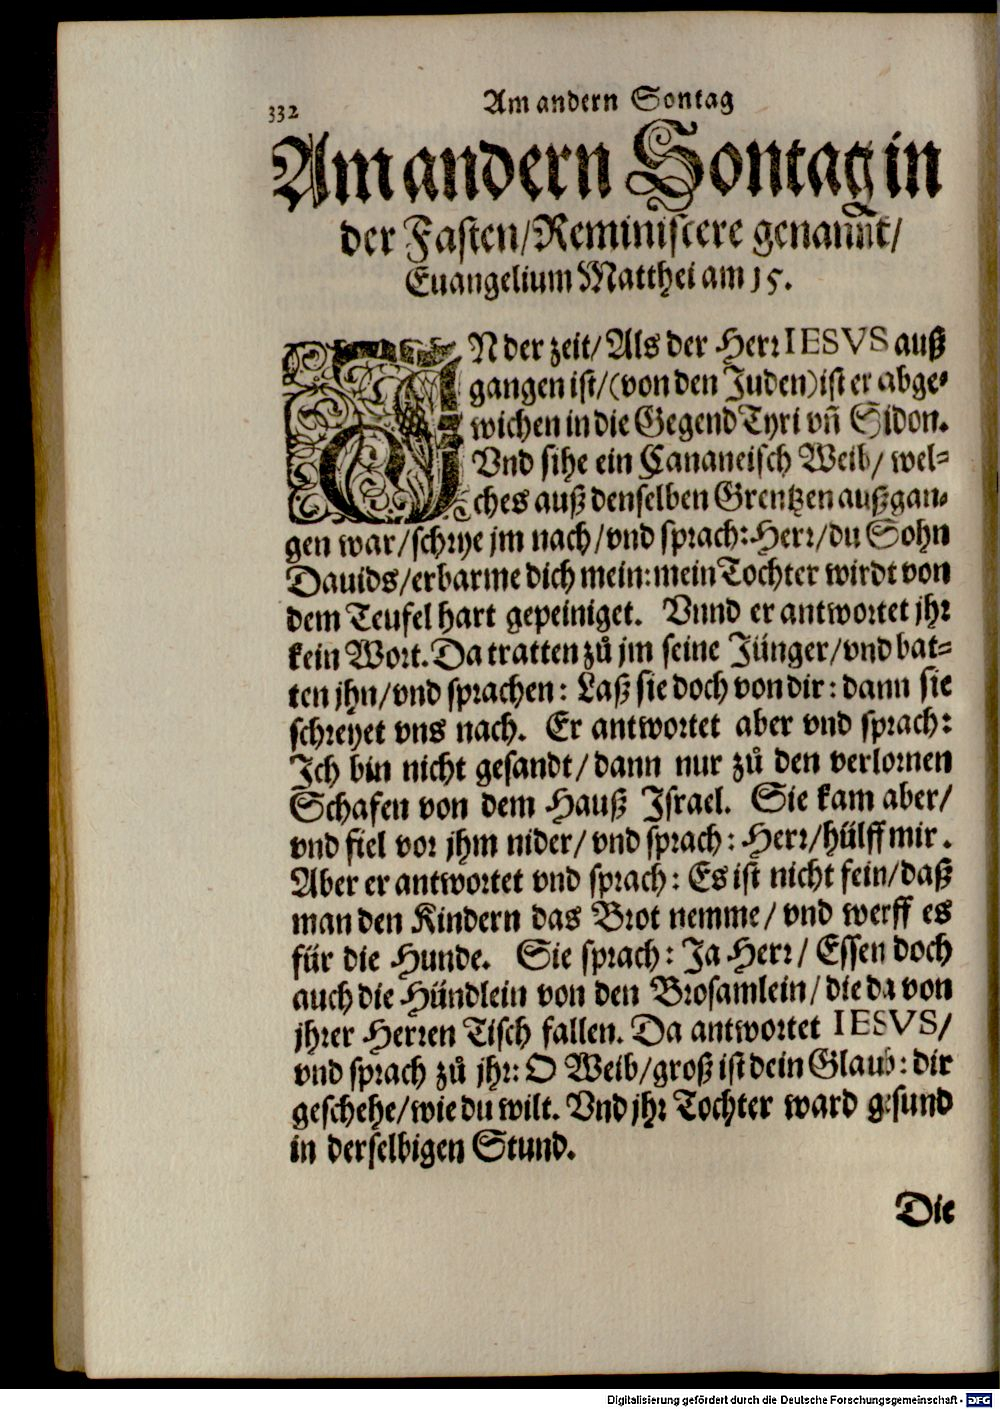 332
Am andern Sontag
Am andern Sontag in
der Fasten/Reminiscere genannt/
Euangelium Matthei am 15.
IN der zeit/Als der Herr IESVS auß
gangen ist/(von den Juden) ist er abge-
wichen in die Gegend Tyri vñ Sidon.
Vnd sihe ein Cananeisch Weib/ wel-
ches auß denselben Grentzen außgan-
gen war/schrye jm nach/vnd sprach: Herr/du Sohn
Dauids/erbarme dich mein: mein Tochter wirdt von
dem Teufel hart gepeiniget. Vnnd er antwortet jhr
kein Wort. Da tratten zů jm seine Jünger/vnd bat-
ten jhn/vnd sprachen: Laß sie doch von dir: dann sie
schreyet vns nach. Er antwortet aber vnd sprach:
Ich bin nicht gesandt/dann nur zů den verlornen
Schafen von dem Hauß Israel. Sie kam aber/
vnd fiel vor jhm nider/vnd sprach: Herr/hülff mir.
Aber er antwortet vnd sprach: Es ist nicht fein/daß
man den Kindern das Brot nemme/ vnd werff es
für die Hunde. Sie sprach: Ja Herr/ Essen doch
auch die Hündlein von den Brosamlein/die da von
jhrer Herren Tisch fallen. Da antwortet IESVS/
vnd sprach zů jhr: O Weib/groß ist dein Glaub: dir
geschehe/wie du wilt. Vnd jhr Tochter ward gesund
in derselbigen Stund.
Die
Digitalisierung gefördert durch die Deutsche Forschungsgemeinschaft - DFG